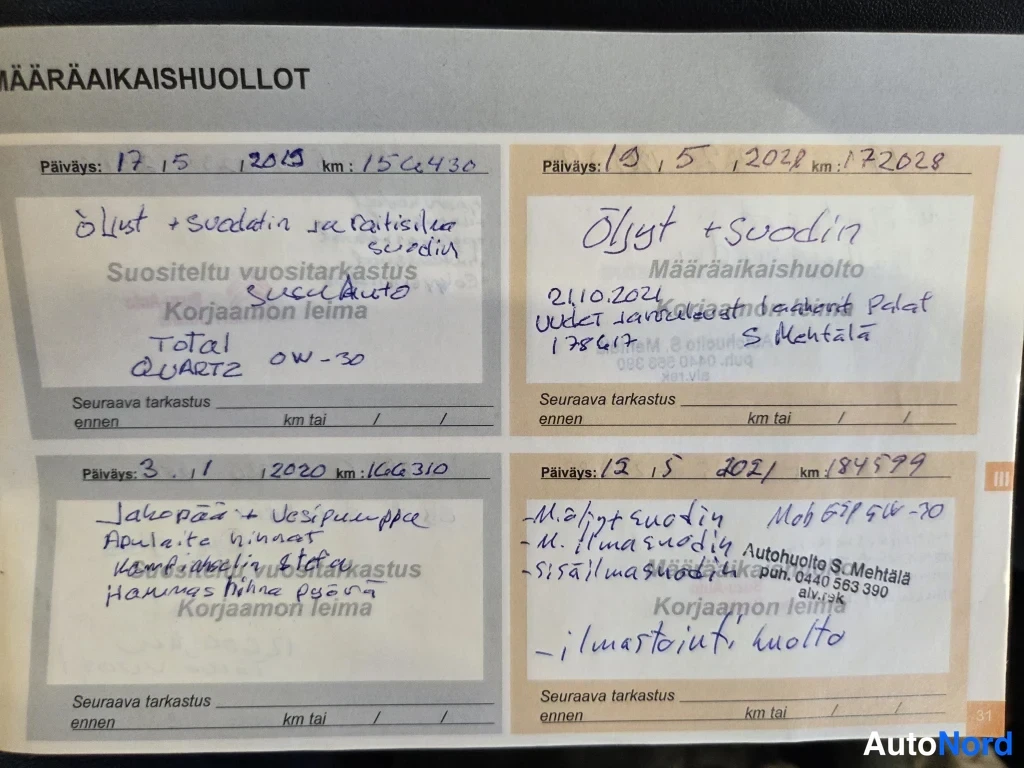 MÄÄRÄAIKAISHUOLLOT
Päiväys: 17 , 5 , 2019 km : 156430
Öljyt + Suodatin ja Raitisilma
suodin
Suositeltu vuositarkastus
SUSUL Auto
Korjaamon leima
TOTAL
QUARTZ 0W-30
Seuraava tarkastus
ennen km tai / /
Päiväys: 19 , 5 , 2021 km : 172028
Öljyt + Suodin
Määräaikaishuolto
21.10.2021
Korjaamon leima
uudet jarrulevyt laakerit Palat
178617 S Mehtälä
Seuraava tarkastus
ennen km tai / /
Päiväys: 3 . , 1 , 2020 km : 166310
Jakopää + Vesipumppu
Apulaite hinnat
Kampiakselin stefa
Suositeltu vuositarkastus
Hammashihna pyörä
Korjaamon leima
Seuraava tarkastus
ennen km tai / /
Päiväys: 12 , 5 2021 km : 184599
- M.öljyt suodin Mob ESP 5W-30
- M. ilmasuodin
- Sisäilmasuodin
Määräaikaishuolto
Autohuolto S. Mehtälä
puh. 0440 563 390
alv.rek
Korjaamon leima
- ilmastointi huolto
Seuraava tarkastus
ennen km tai / /
III
31
AutoNord